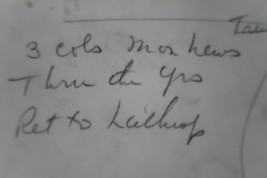 3 cols Mon News
Thru the yrs
Ret to Lathrop